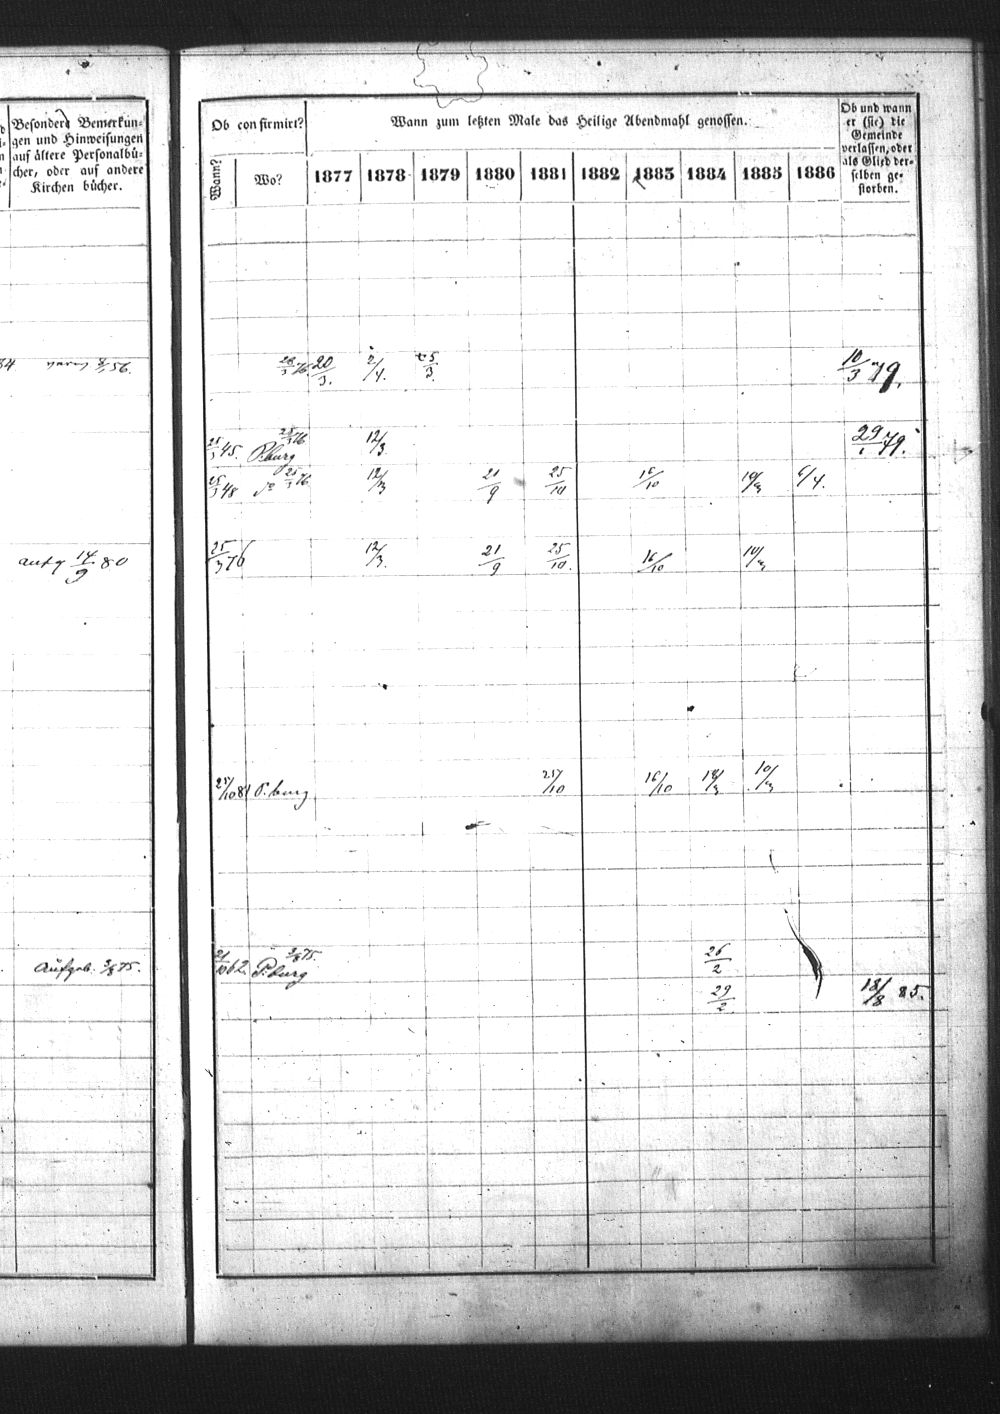 Besondere Bemerkun-
gen und Hinweisungen
auf ältere Personalbü-
cher, oder auf andere
Kirchen bücher.
Ob confirmirt?
Wann zum letzten Male das Heilige Abendmahl genossen.
Ob und wann
er (sie) die
Gemeinde
verlassen, oder
als Glied der-
selben ge-
storben.
Wann?
Wo?
1877 1878 1879 1880 1881 1882 1883 1884 1885 1886
8/1 56. 28/3 76. 20/3. 2/4. 25/3. 10/3 79.
25/3 76
25/3 45. P.burg 12/3 29/1 79.
25/3 48 25/3 76 12/3 21/9 25/10 16/10 10/3 6/4.
14/9 80 25/3 76 12/3. 21/9 25/10. 16/10 10/3
25/10 81 P.burg 25/10 16/10 18/3 10/3
Aufgeb. 3/8 75. 21/10 62 P.burg 3/8 75 26/2
29/2. 18/8 85.